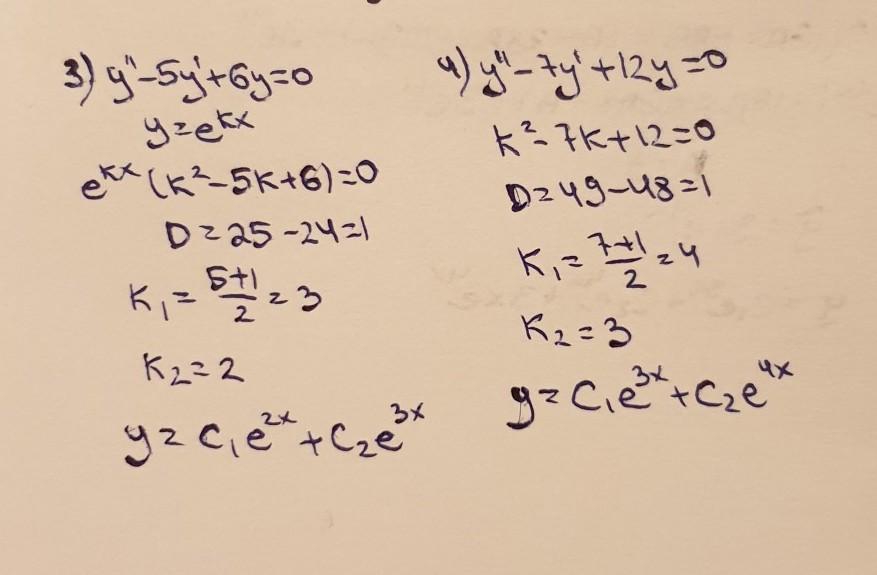 3) y''-5y'+6y=0
y=e^{kx}
e^{kx}(k²-5k+6)=0
D=25-24=1
K₁=\frac{5+1}{2}=3
K₂=2
y=C₁e^{2x}+C₂e^{3x}
4) y''-7y'+12y=0
k²-7k+12=0
D=49-48=1
K₁=\frac{7+1}{2}=4
K₂=3
y=C₁e^{3x}+C₂e^{4x}